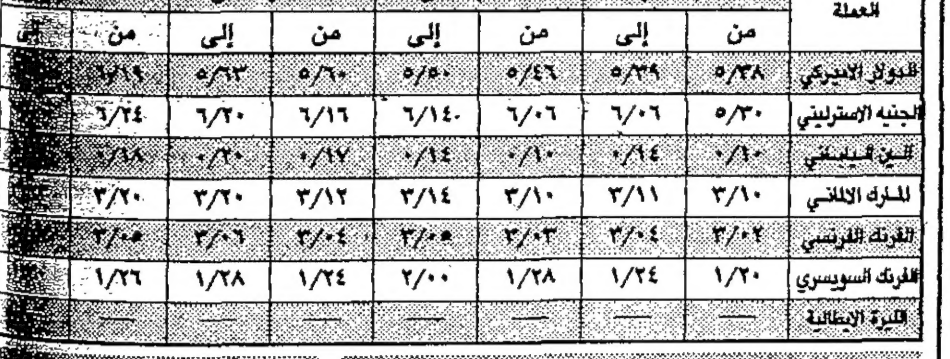 العملة
من إلى من إلى من إلى من إلى
الدولار الاميركي ٥/٣٨ ٥/٣٩ ٥/٤٦ ٥/٥٠ ٥/٦٠ ٥/٦٣ ٦/١٩
الجنيه الاسترليني ٥/٣٠ ٦/٠٦ ٦/٠٦ ٦/١٤ ٦/١٦ ٦/٢٠ ٦/٢٤
الين الياباني ٠/١٠ ٠/١٤ ٠/١٠ ٠/١٤ ٠/١٧ ٠/٢٠ ٠/١٨
المارك الالماني ٣/١٠ ٣/١١ ٣/١٠ ٣/١٤ ٣/١٢ ٣/٢٠ ٣/٢٠
الفرنك الفرنسي ٣/٠٢ ٣/٠٤ ٣/٠٣ ٣/٠٥ ٣/٠٤ ٣/٠٦ ٣/٠٥
الفرنك السويسري ١/٢٠ ١/٢٤ ١/٢٨ ٢/٠٠ ١/٢٤ ١/٢٨ ١/٢٦
الليرة الإيطالية — — — — — — —